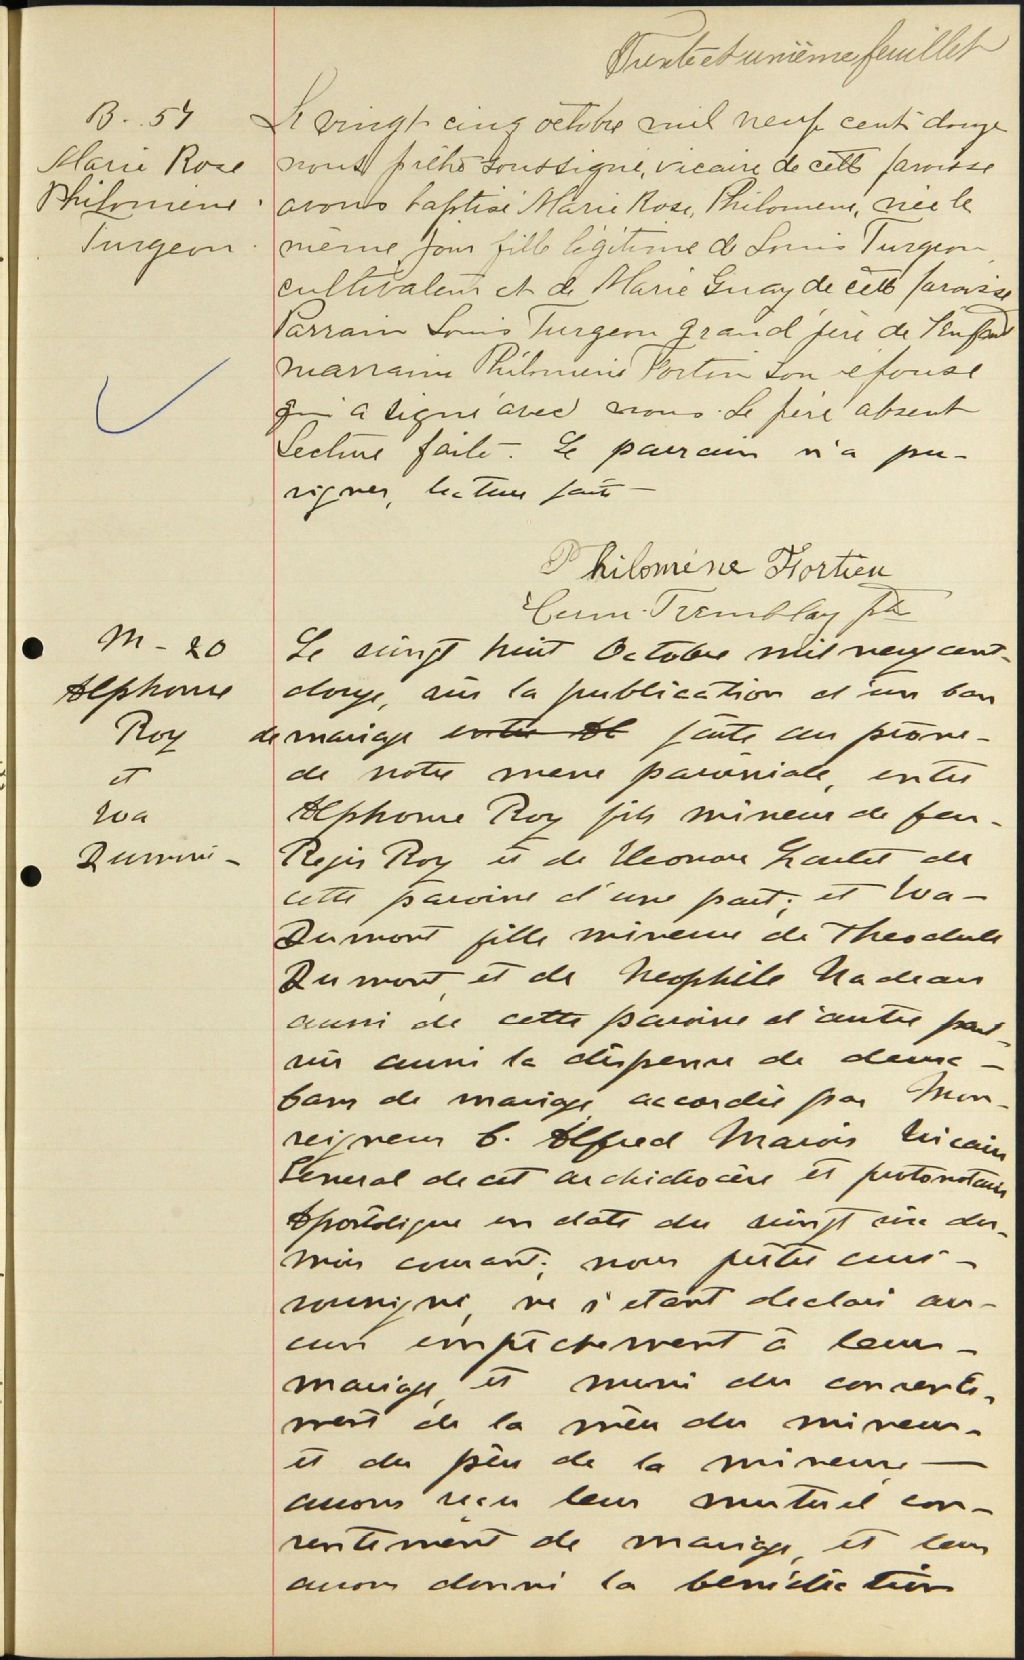 Trente et unième feuillet
B. 57
Marie Rose
Philomène
Turgeon
Le vingt cinq octobre mil neuf cent douze
nous prêtre soussigné, vicaire de cette paroisse
avons baptisé Marie Rose, Philomene, née le
même jour fille légitime de Louis Turgeon
cultivateur et de Marie Guay de cette paroisse
Parrain Louis Turgeon grand père de l'enfant
marraine Philomène Fortin son épouse
qui a signé avec nous. Le père absent
Lecture faite. Le parrain n'a pu
signer, lecture faite
Philomène Fortien
Tremblay ptr
M - 20
Alphonse
Roy
et
Eva
Dumont
Le vingt huit Octobre mil neuf cent
douze, vu la publication d'un ban
de mariage entre Al faite au prône
de notre messe paroissiale, entre
Alphonse Roy fils mineur de feu
Regis Roy et de Eleonore Goulet de
cette paroisse d'une part; et Eva
Dumont fille mineure de Theodule
Dumont, et de Neophile Nadeau
aussi de cette paroisse d'autre part
vu aussi la dispense de deux
bans de mariage accordée par Mon-
seigneur C. Alfred Marois Vicaire
General de cet archidiocèse et protonotaire
Apostolique en date du vingt six du
mois courant; nous prêtre curé
soussigné, ne s'étant déclaré au-
cun empêchement à leur
mariage, et muni du consente-
ment de la mère du mineur
et du père de la mineure
avons reçu leur mutuel con-
sentement de mariage, et leur
avons donné la bénédiction